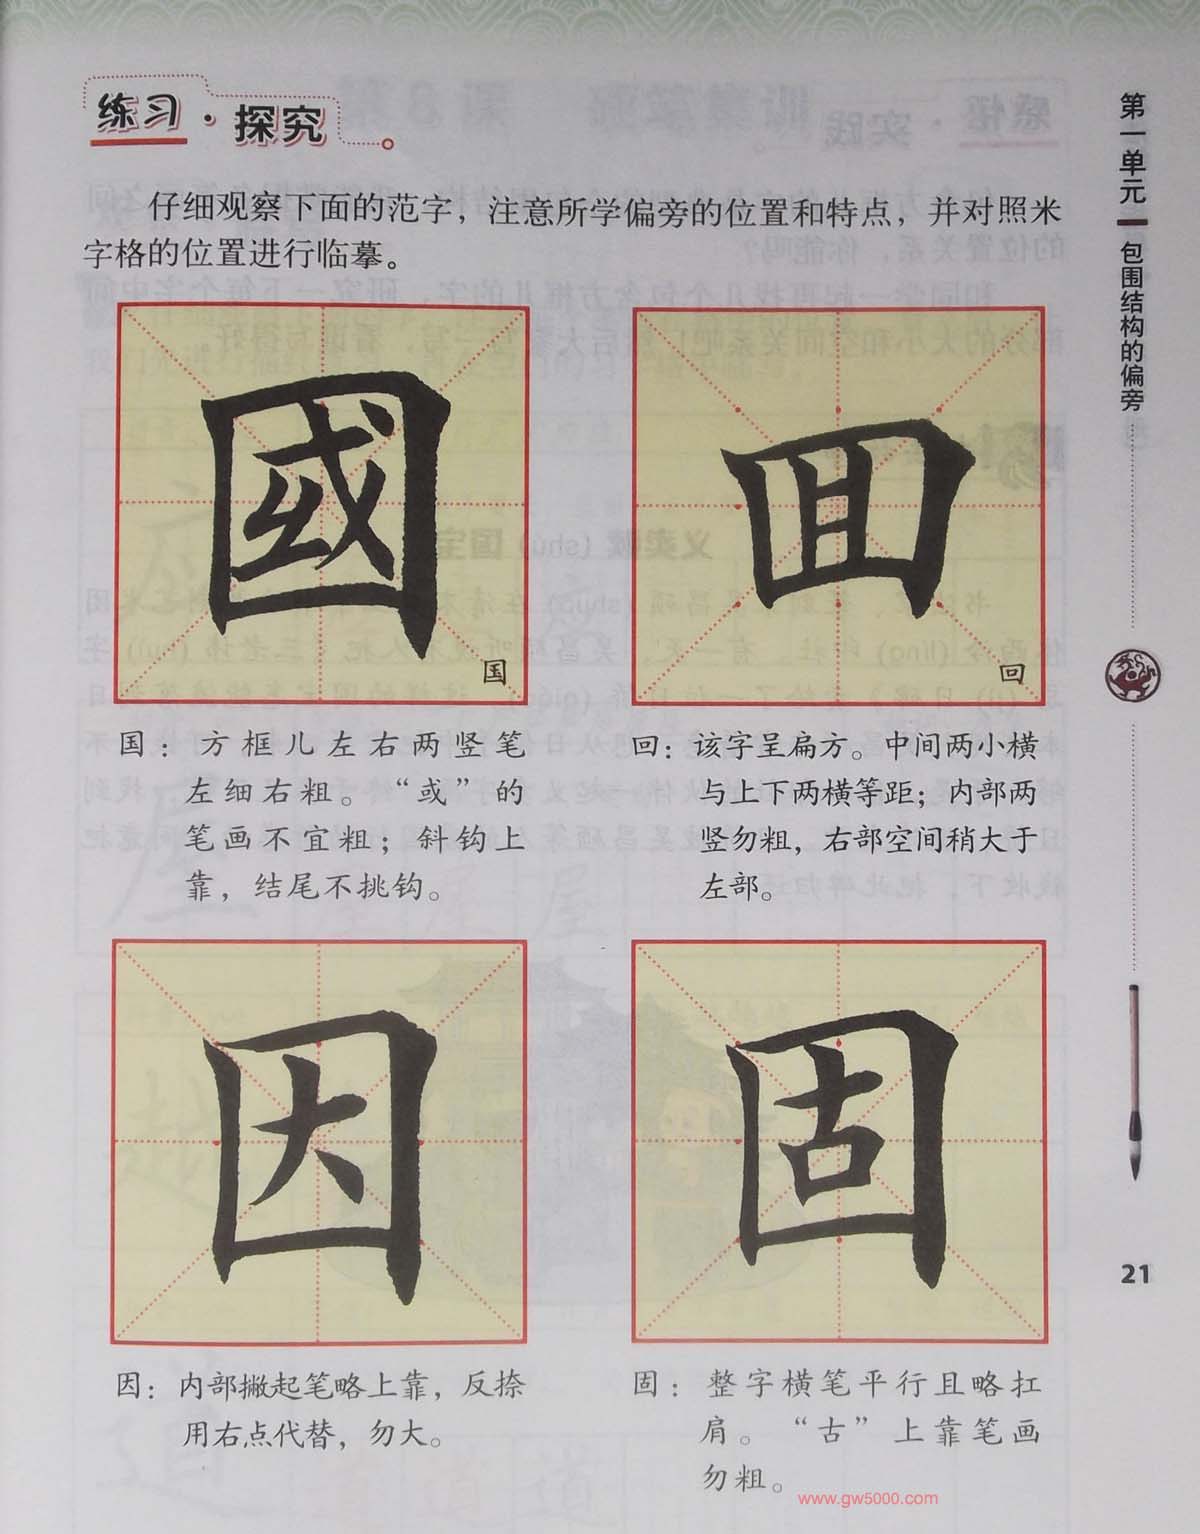 练习·探究
仔细观察下面的范字，注意所学偏旁的位置和特点，并对照米
字格的位置进行临摹。
國
国
国：方框儿左右两竖笔
左细右粗。“或”的
笔画不宜粗；斜钩上
靠，结尾不挑钩。
回
回
回：该字呈扁方。中间两小横
与上下两横等距；内部两
竖勿粗，右部空间稍大于
左部。
因
因：内部撇起笔略上靠，反捺
用右点代替，勿大。
固
固：整字横笔平行且略扛
肩。“古”上靠笔画
勿粗。
第一单元
包围结构的偏旁
21
www.gw5000.com